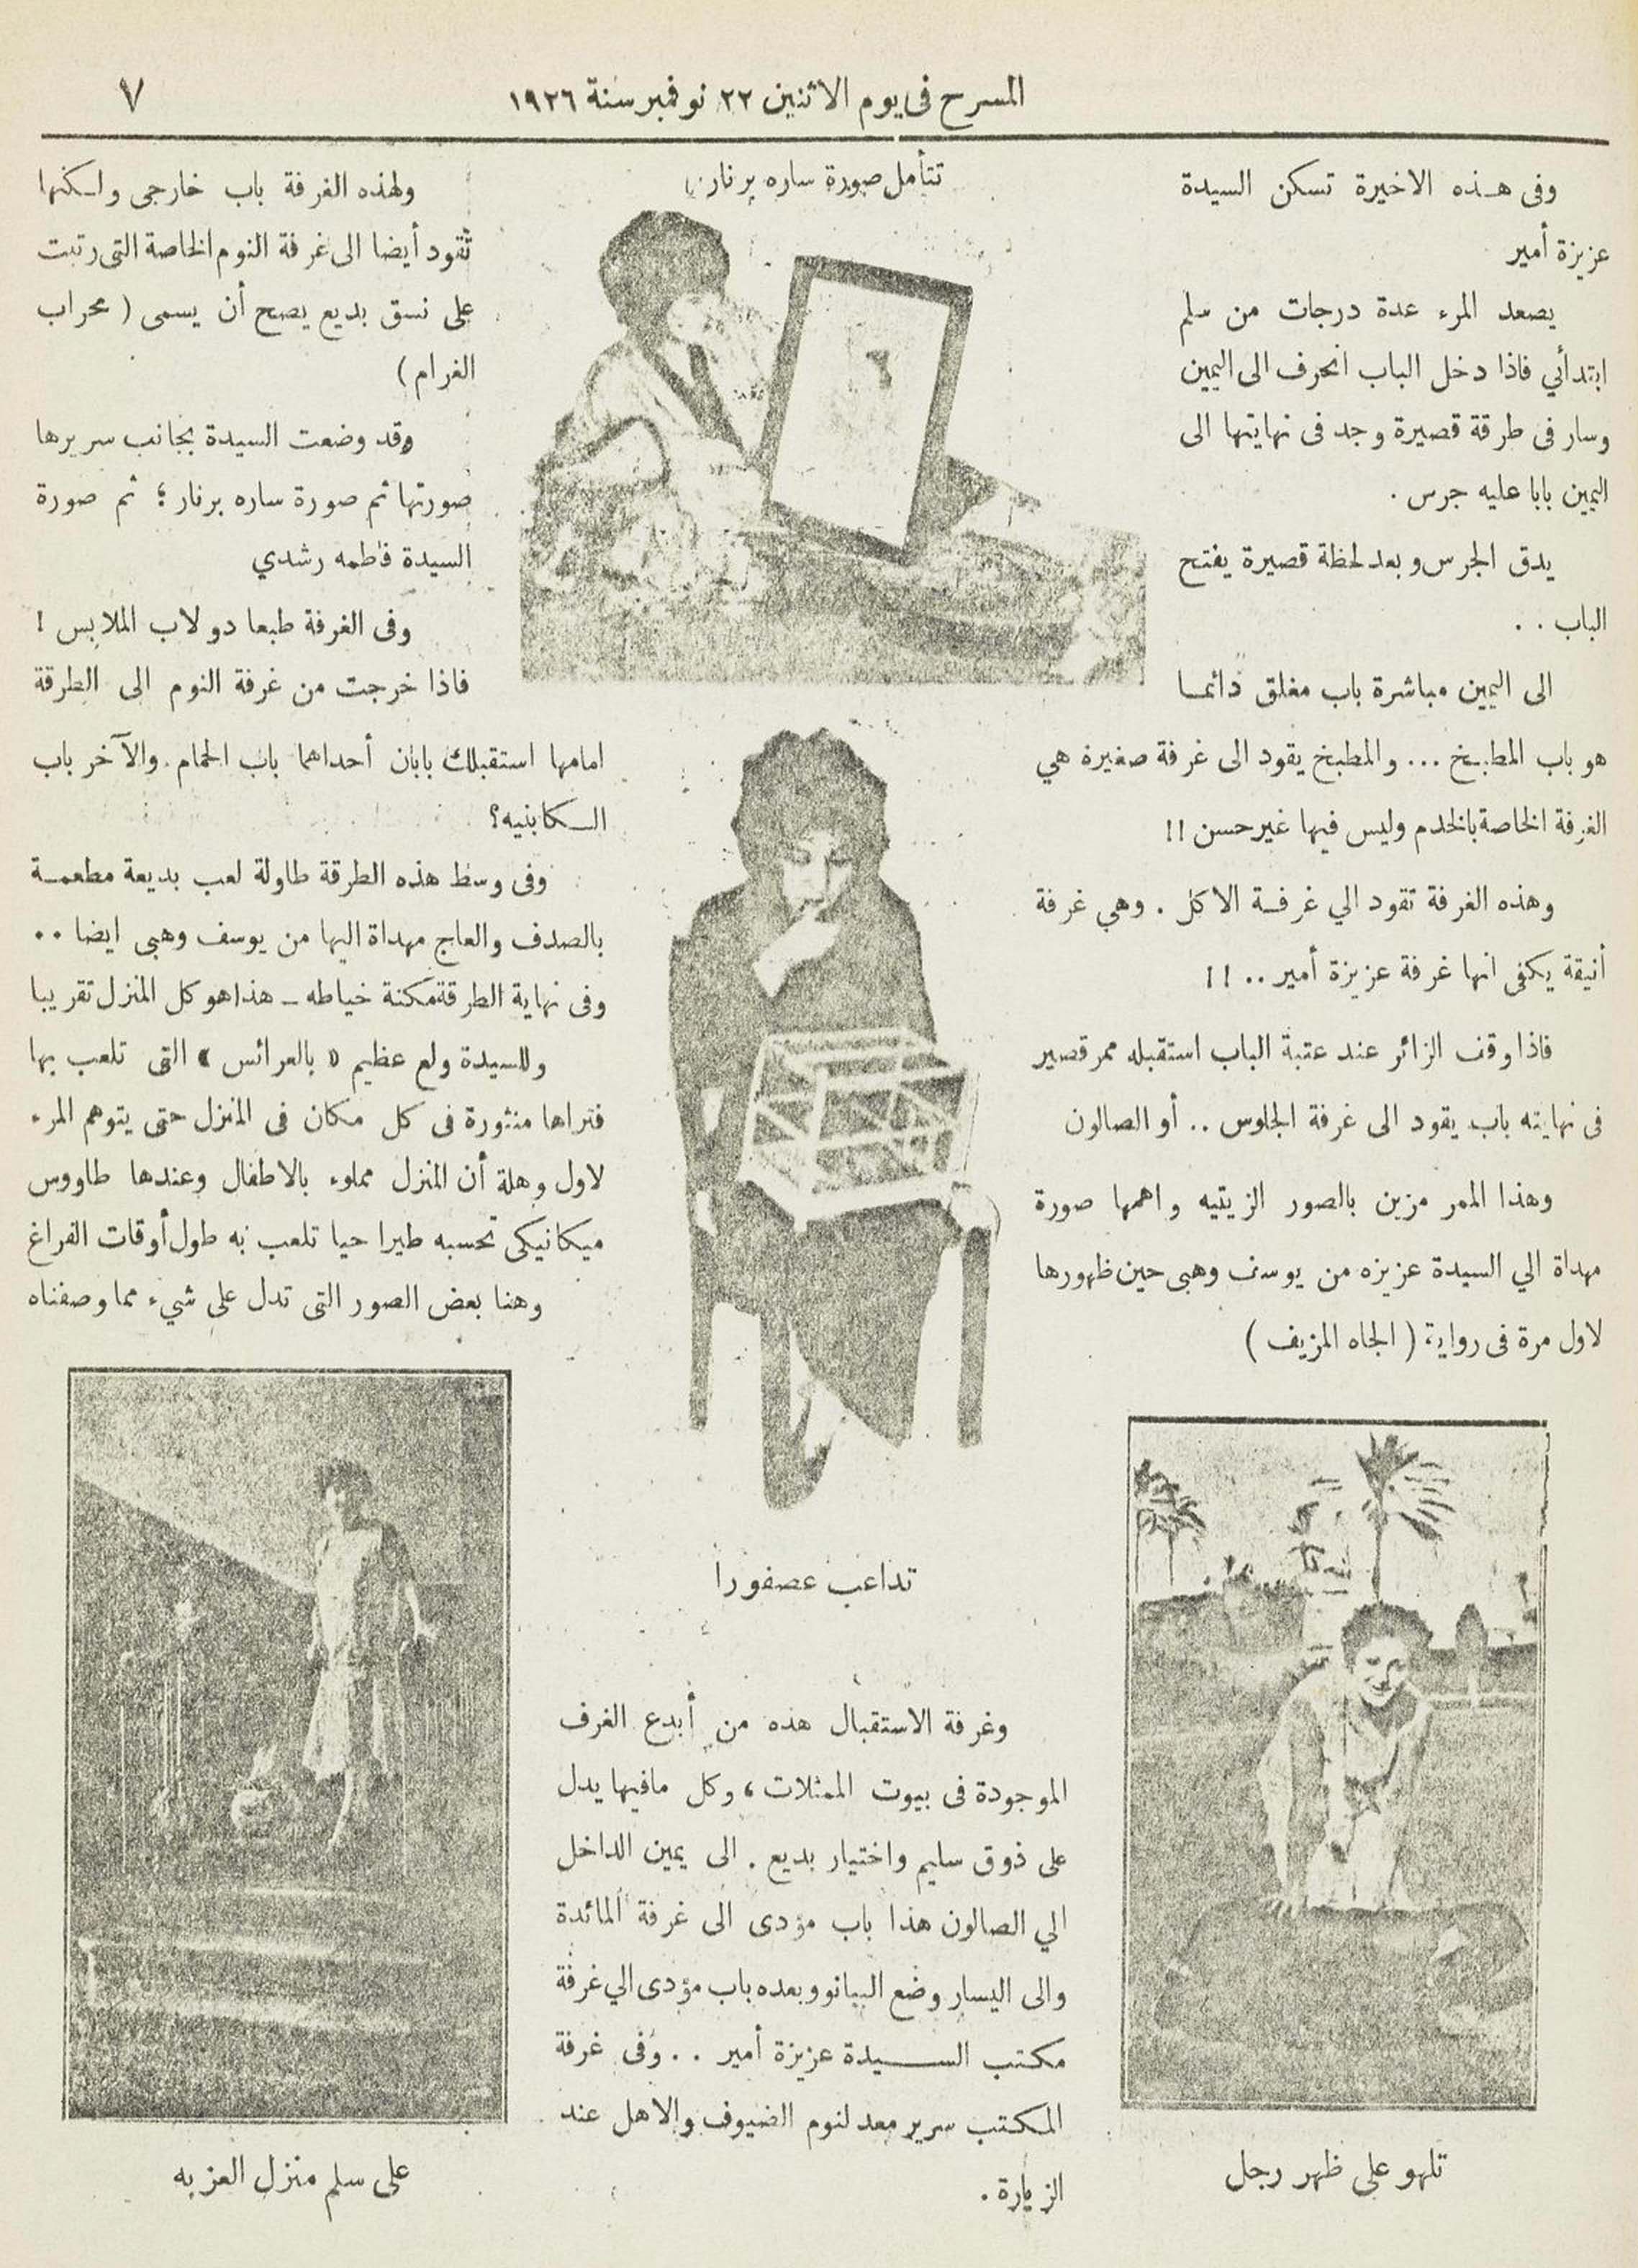 المسرح فى يوم الاثنين ٢٢ نوفمبر سنة ١٩٢٦
٧
وفى هذه الاخيرة تسكن السيدة
عزيزة أمير
يصعد المرء عدة درجات من سلم
ابتدائي فاذا دخل الباب انحرف الى اليمين
وسار فى طرقة قصيرة وجد فى نهايتها الى
اليمين بابا عليه جرس .
يدق الجرس وبعد لحظة قصيرة يفتح
الباب . .
الى اليمين مباشرة باب مغلق دائما
هو باب المطبخ ... والمطبخ يقود الى غرفة صغيرة هي
الغرفة الخاصة بالخدم وليس فيها غير حسن !!
وهذه الغرفة تقود الي غرفة الاكل . وهي غرفة
أنيقة يكفى انها غرفة عزيزة أمير .. !!
فاذا وقف الزائر عند عتبة الباب استقبله ممر قصير
فى نهايته باب يقود الى غرفة الجلوس .. أو الصالون
وهذا الممر مزين بالصور الزيتيه واهمها صورة
مهداة الي السيدة عزيزه من يوسف وهبى حين ظهورها
لاول مرة فى رواية ( الجاه المزيف )
تلهو على ظهر رجل
تتأمل صورة ساره برنار
تداعب عصفورا
وغرفة الاستقبال هذه من أبدع الغرف
الموجودة فى بيوت الممثلات ، وكل مافيها يدل
على ذوق سليم واختيار بديع . الى يمين الداخل
الي الصالون هذا باب مؤدى الى غرفة المائدة
والى اليسار وضع البيانو وبعده باب مؤدى الي غرفة
مكتب السيدة عزيزة أمير . . وفى غرفة
المكتب سرير معد لنوم الضيوف والاهل عند
الزيارة .
ولهذه الغرفة باب خارجى ولكنها
تقود أيضا الى غرفة النوم الخاصة التى رتبت
على نسق بديع يصح أن يسمى ( محراب
الغرام )
وقد وضعت السيدة بجانب سريرها
صورتها ثم صورة ساره برنار ؛ ثم صورة
السيدة فاطمه رشدي
وفى الغرفة طبعا دولاب الملابس !
فاذا خرجت من غرفة النوم الى الطرقة
امامها استقبلك بابان أحداهما باب الحمام والآخر باب
الكابنيه؟
وفى وسط هذه الطرقة طاولة لعب بديعة مطعمة
بالصدف والعاج مهداة اليها من يوسف وهبى ايضا ..
وفى نهاية الطرقة مكنة خياطه ـ هذا هو كل المنزل تقريبا
وللسيدة ولع عظيم « بالعرائس » التى تلعب بها
فتراها منثورة فى كل مكان فى المنزل حتى يتوهم المرء
لاول وهلة أن المنزل مملوء بالاطفال وعندها طاووس
ميكانيكى تحسبه طيرا حيا تلعب به طول أوقات الفراغ
وهنا بعض الصور التى تدل على شيء مما وصفناه
على سلم منزل العزبه